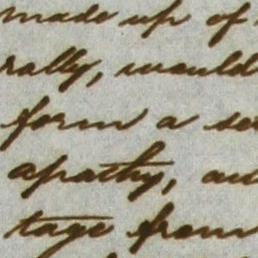 made up of
rally, would
form a
apathy,
tage from